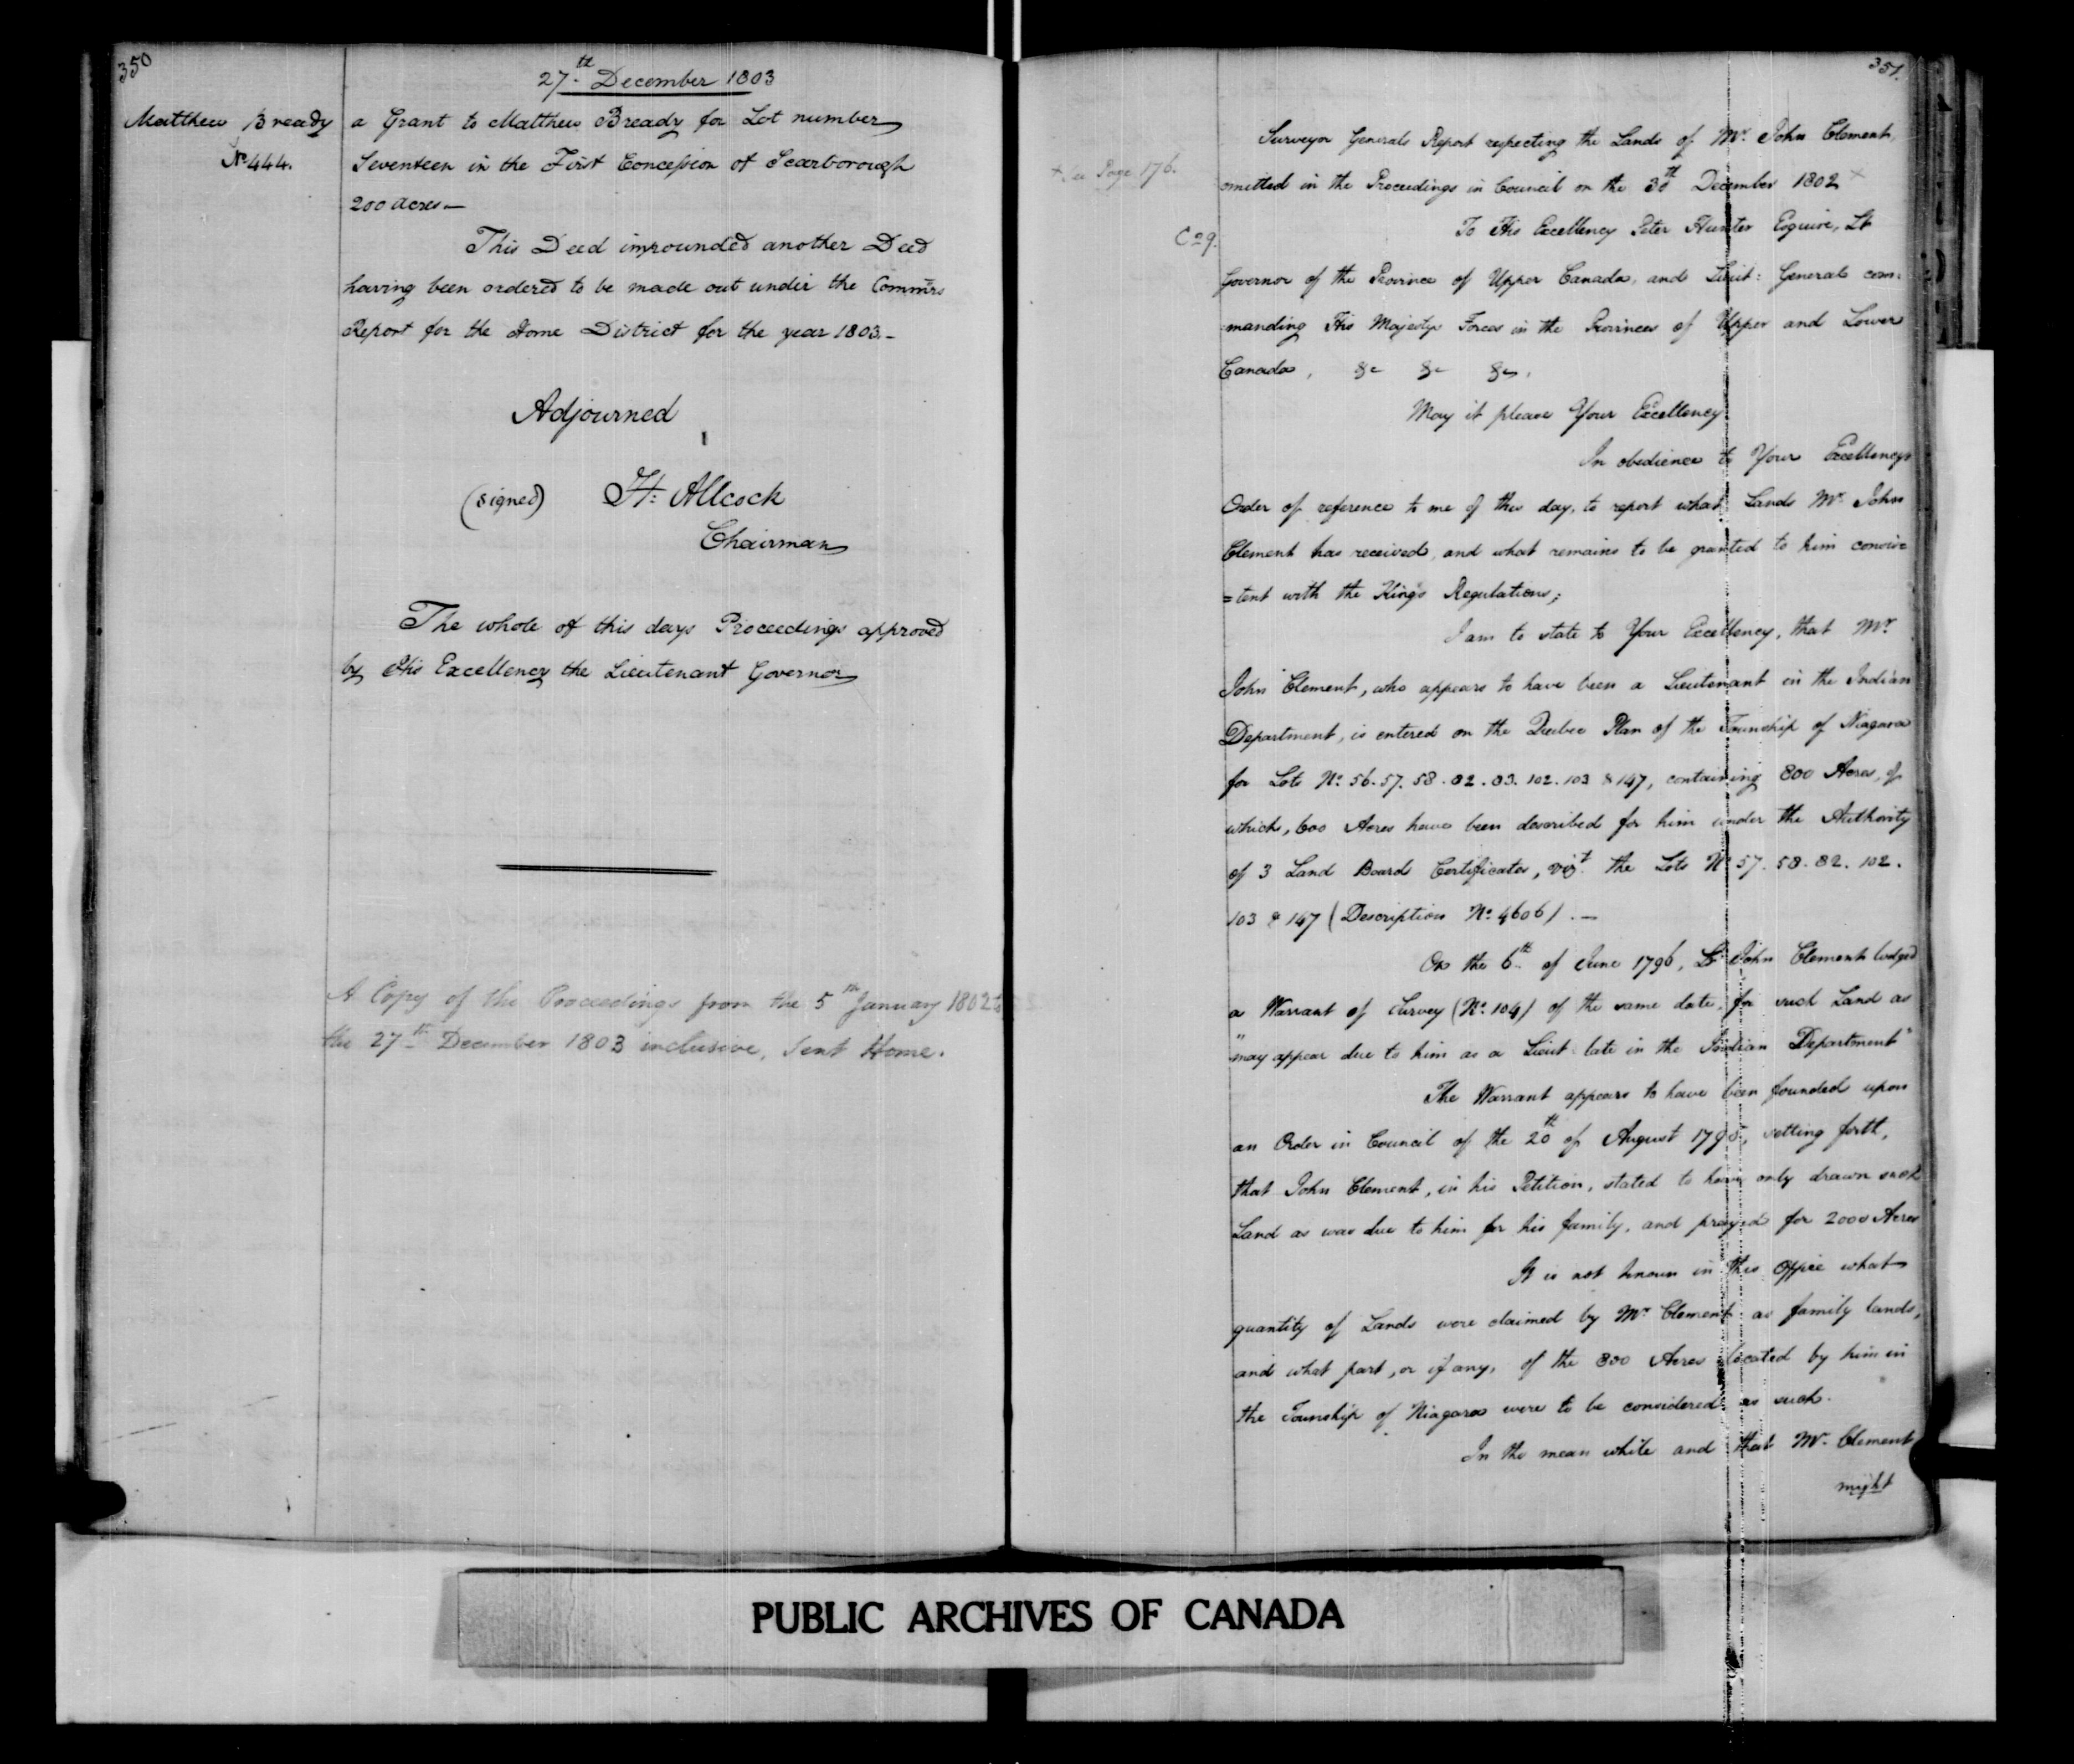 350
27.th December 1803
Matthew Bready
No 444.
a Grant to Matthew Bready for Lot number
Seventeen in the First Concession of Scarborough
200 Acres—
This Deed impounded another Deed
having been ordered to be made out under the Commrs
Report for the Home District for the year 1803.—
Adjourned
(signed) H: Allcock
Chairman
The whole of this days Proceedings approved
by His Excellency the Lieutenant Governor
A Copy of the Proceedings from the 5th January 1802 to
the 27th December 1803 inclusive, Sent Home.
351.
Surveyor Generals Report respecting the Lands of Mr. John Clement,
+ See Page 176.
omitted in the Proceedings in Council on the 30th December 1802 ×
To His Excellency Peter Hunter Esquire, Lt
Governor of the Province of Upper Canada, and Lieut: General com:
:manding His Majestys Forces in the Provinces of Upper and Lower
Canada, &c &c &c,
May it please Your Excellency
In obedience to Your Excellencys
Order of reference to me of this day, to report what Lands Mr. John
Clement has received, and what remains to be granted to him consis
=tent with the King's Regulations;
I am to state to Your Excellency, that Mr.
John Clement, who appears to have been a Lieutenant in the Indian
Department, is entered on the Quebec Plan of the Township of Niagara
for Lots No. 56. 57. 58. 82. 83. 102. 103 & 147, containing 800 Acres, of
which, 600 Acres have been described for him under the Authority
of 3 Land Board Certificates, vizt. the Lots No 57. 58. 82. 102.
103 & 147 (Description No. 4606).—
On the 6th of June 1796, Lt John Clement lodged
a Warrant of Survey (No. 104) of the same date, for such Land as
"may appear due to him as a Lieut: late in the Indian Department"
The Warrant appears to have been founded upon
an Order in Council of the 20th of August 1795, setting forth,
that John Clement, in his Petition, stated to have only drawn such
Land as was due to him for his family, and prayed for 2000 Acres
It is not known in this Office what
quantity of Lands were claimed by Mr. Clement as family lands,
and what part, or if any, of the 800 Acres located by him in
the Township of Niagara were to be considered as such.
In the mean while and that Mr. Clement
might
PUBLIC ARCHIVES OF CANADA